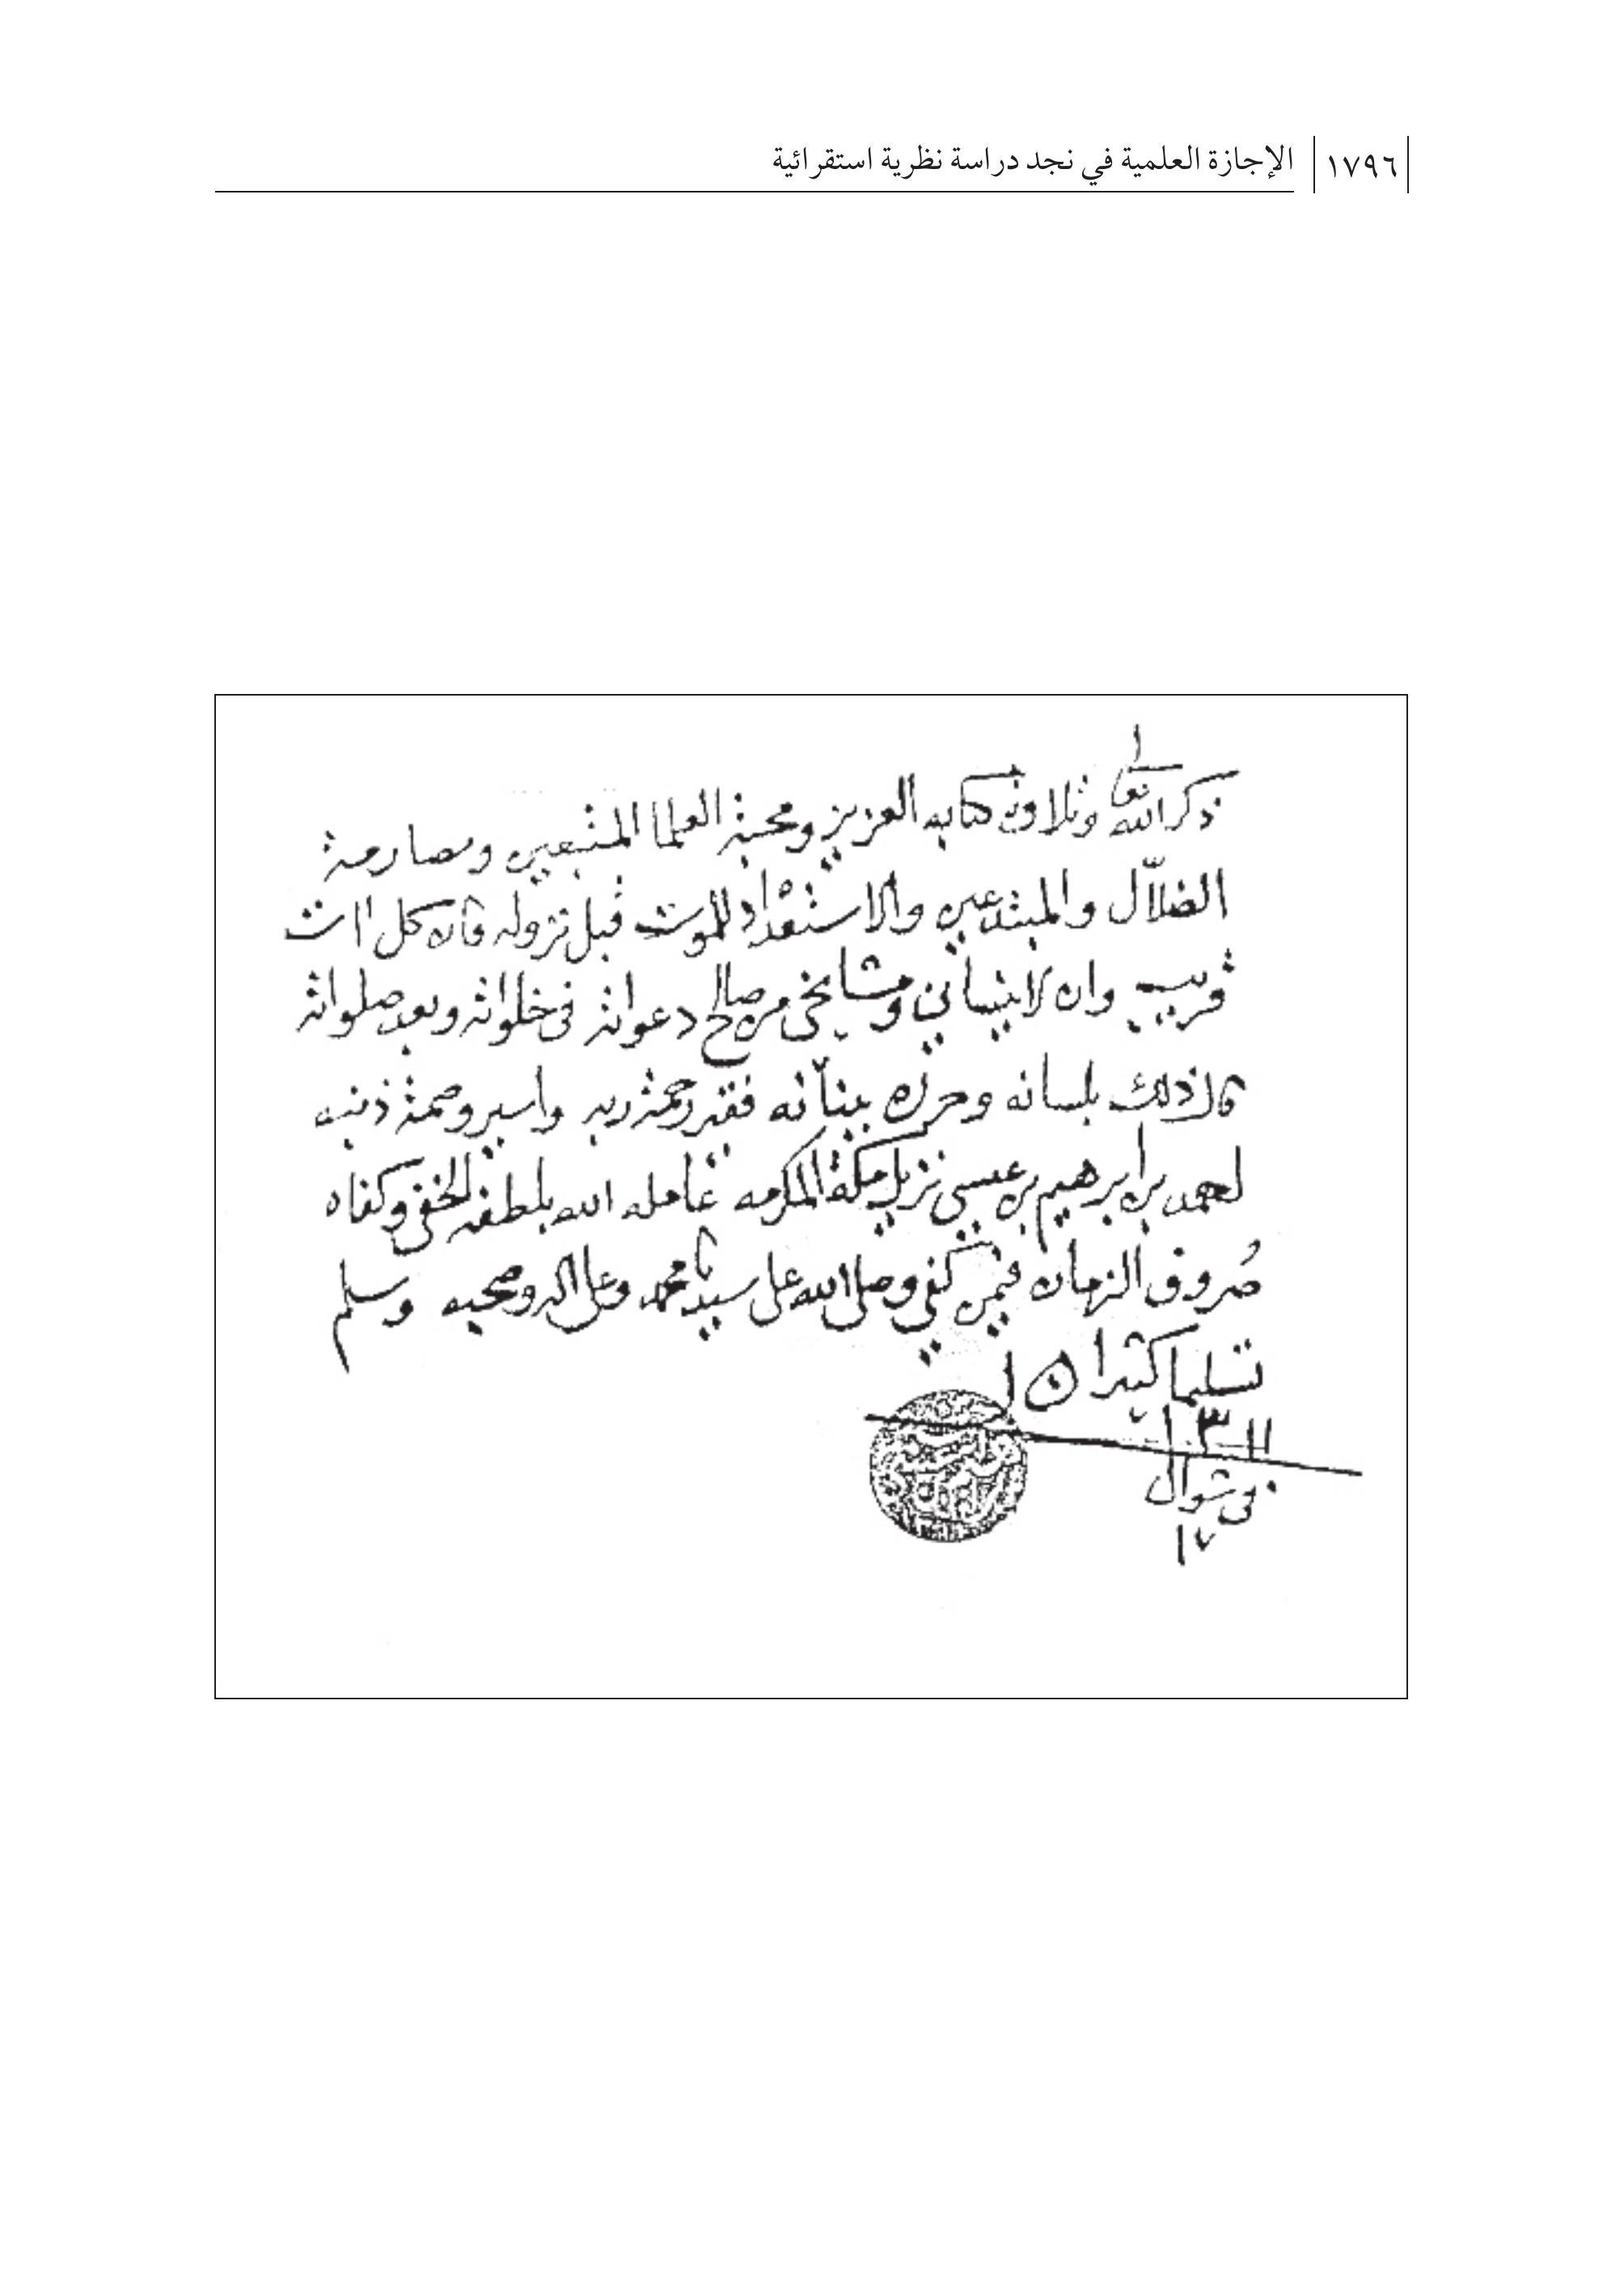 ١٧٩٦ الإجازة العلمية في نجد دراسة نظرية استقرائية
ذكر الله تعالى وتلاوة كتابه العزيز ومحبة العلما المتبعين ومصارمة
الضلّال والمبتدعين والاستعداد للموت قبل نزوله فان كل اات
قريب وان لا ينساني ومشايخي من صالح دعواته في خلواته وبعد صلواته
قال ذلك بلسانه وحرره ببنانه فقير رحمة ربه واسير وصمة ذنبه
احمد بن ابرهيم بن عيسى نزيل مكة المكرمه عامله الله بلطفه الخفي وكفاه
صُروف الزمان فيمن كفي وصلى الله على سيدنا محمد وعلى اله وصحبه وسلم
تسليما كثيرا
١٣١١
في شوال
١٧